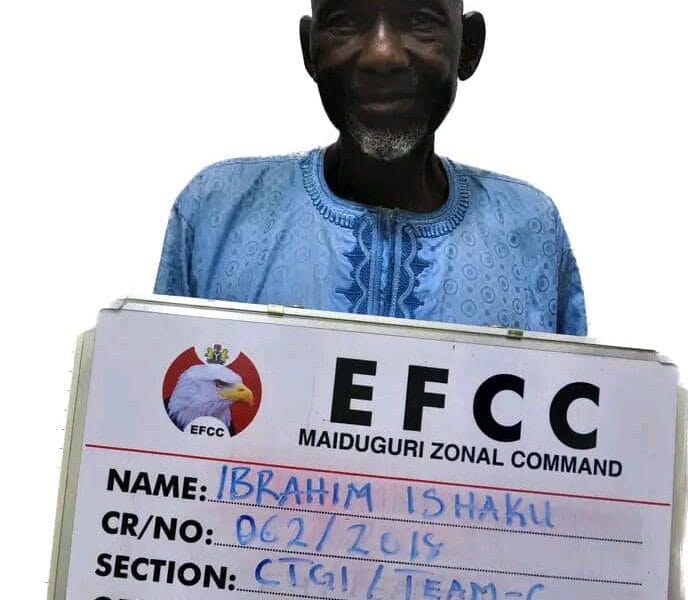 EFCC
EFCC
MAIDUGURI ZONAL COMMAND
NAME: IBRAHIM ISHAKU
CR/NO: 062/2018
SECTION: CTGI/TEAM-C